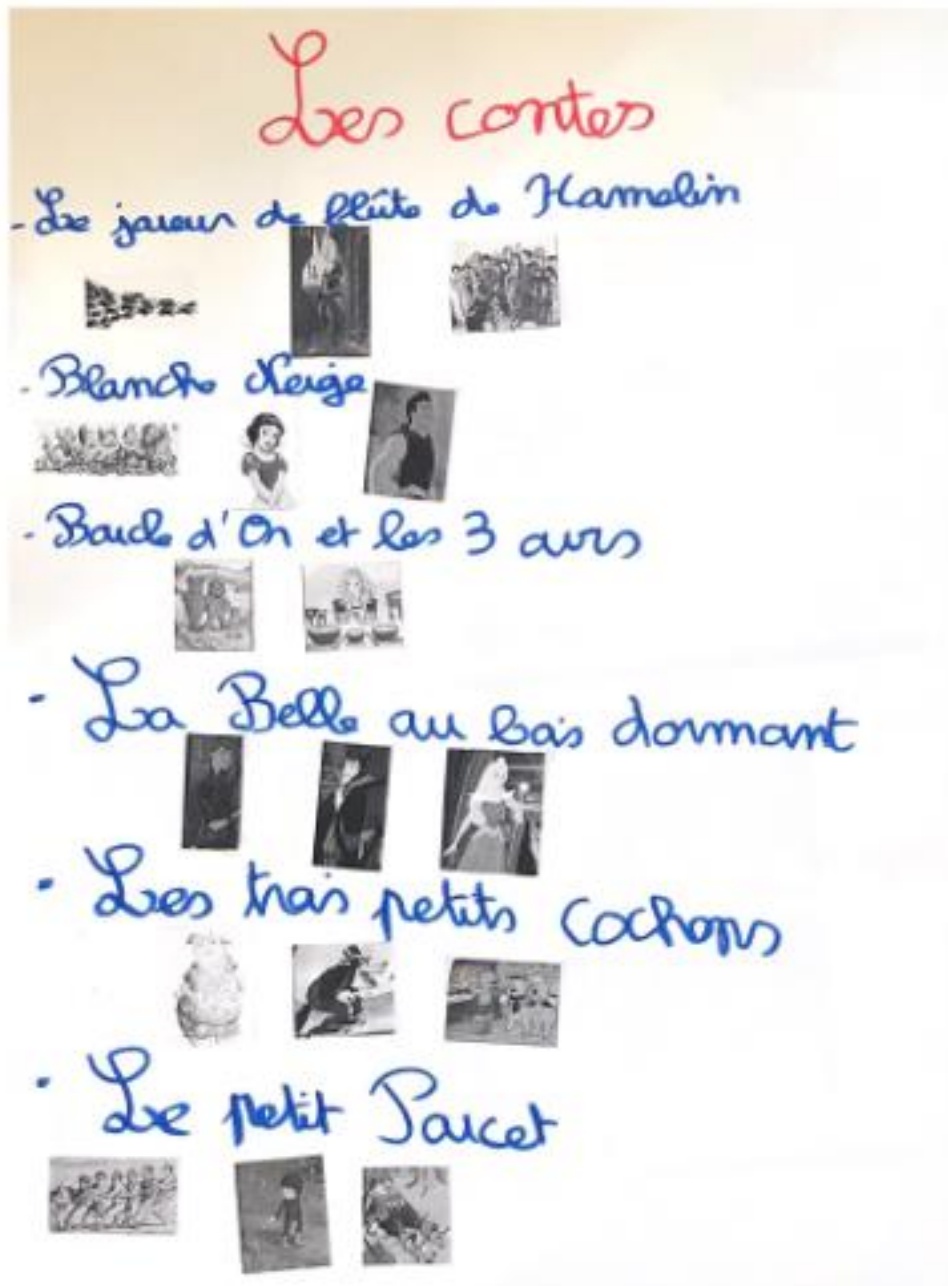 Les contes
- Le joueur de flûte de Hamelin
- Blanche Neige
- Boucle d'Or et les 3 ours
- La Belle au bois dormant
- Les trois petits cochons
- Le petit Poucet